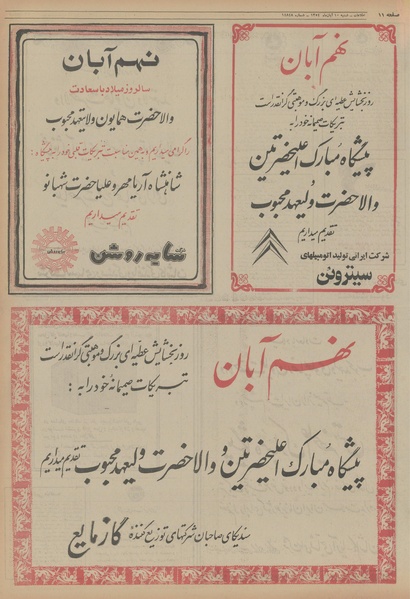 صفحه ۱۱
نهم آبان
روز بخشایش عطیه‌ای بزرگ و موهبتی گرانقدر است
تبریکات صمیمانه خود را به
پیشگاه مبارک اعلیحضرتین
و
والاحضرت ولیعهد محبوب
تقدیم میداریم
شرکت ایرانی تولید اتومبیلهای
سیتروئن
نهم آبان
سالروز میلاد باسعادت
والاحضرت همایون ولایتعهد محبوب
را گرامی میداریم و بدین مناسبت تبریکات قلبی خود را به پیشگاه :
شاهنشاه آریامهر و علیاحضرت شهبانو
تقدیم میداریم
سایه روشن
نهم آبان
روز بخشایش عطیه‌ای بزرگ و موهبتی گرانقدر است
تبریکات صمیمانه خود را به :
پیشگاه مبارک اعلیحضرتین و والاحضرت ولیعهد محبوب تقدیم میداریم
سندیکای صاحبان شرکتهای توزیع کننده گاز مایع